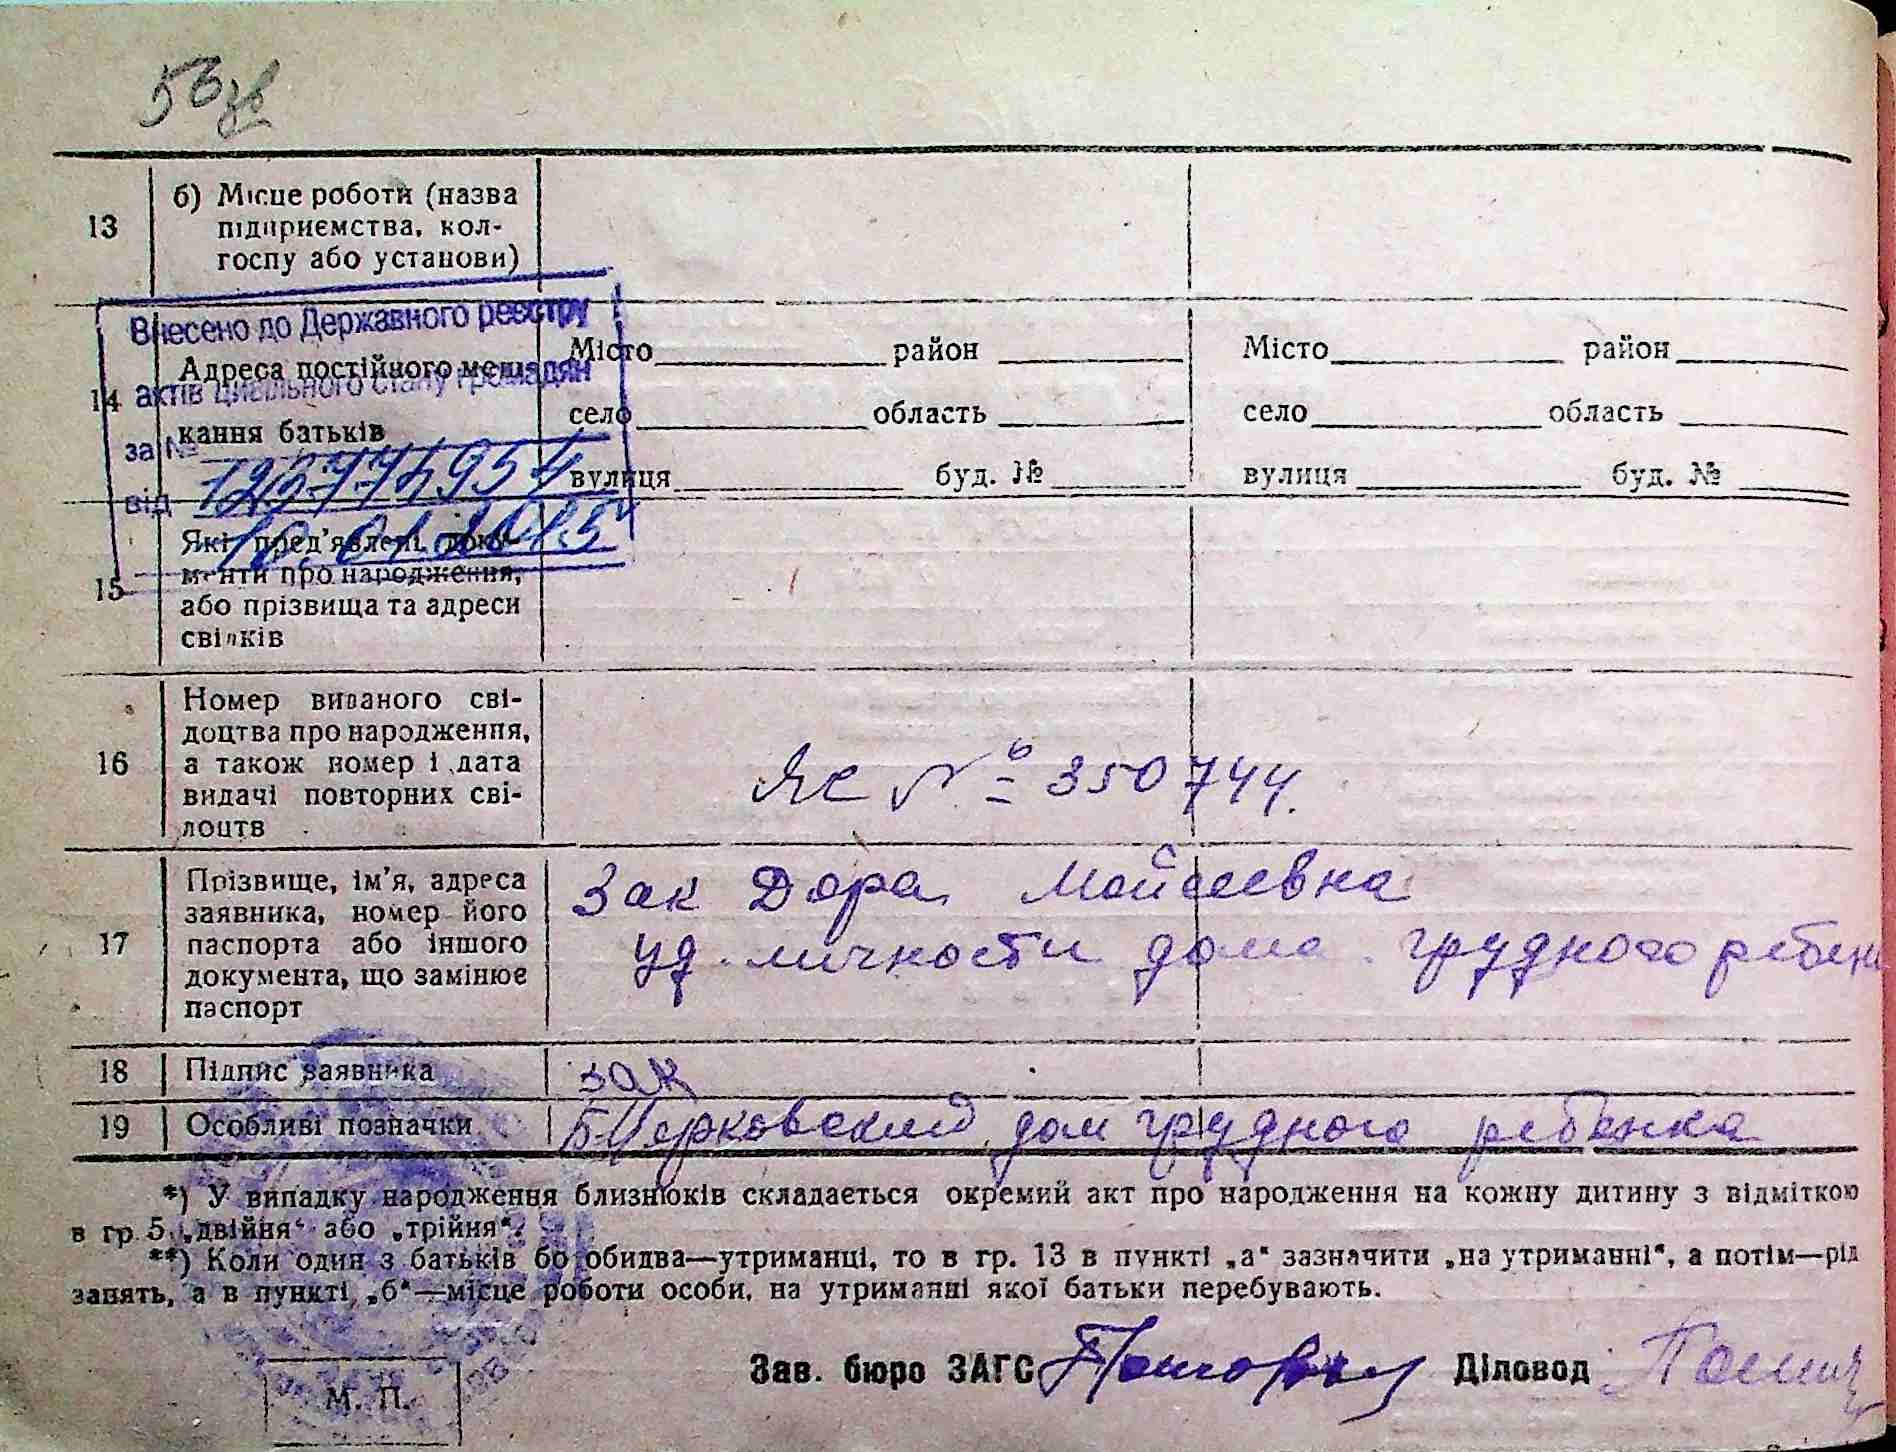 56 зв
13
б) Місце роботи (назва
підприємства, кол-
госпу або установи)
Внесено до Державного реєстру
актів цивільного стану громадян
за №
від
14
Адреса постійного меш-
кання батьків
Місто район
село область
вулиця буд. №
Місто район
село область
вулиця буд. №
15
Які пред'явлені доку-
менти про народження,
або прізвища та адреси
свідків
16
Номер виданого сві-
доцтва про народження,
а також номер і дата
видачі повторних сві-
доцтв
ЯС № 350744.
17
Прізвище, ім'я, адреса
заявника, номер його
паспорта або іншого
документа, що замінює
паспорт
Зак Дора Мойсеевна
уд. личности дома грудного ребенк
18
Підпис заявника
Зак
19
Особливі позначки
Б-Церковский дом грудного ребенка
*) У випадку народження близнюків складається окремий акт про народження на кожну дитину з відміткою
в гр. 5 „двійня“ або „трійня“.
**) Коли один з батьків бо обидва—утриманці, то в гр. 13 в пункті „а“ зазначити „на утриманні“, а потім—рід
занять, а в пункті „б“—місце роботи особи, на утриманні якої батьки перебувають.
Зав. бюро ЗАГС
Діловод
М. П.